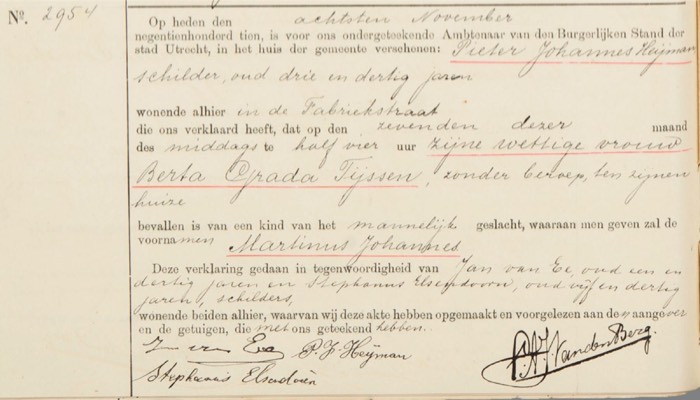 N°. 2954
Op heden den achtsten November
negentienhonderd tien, is voor ons ondergeteekende Ambtenaar van den Burgerlijken Stand der
stad Utrecht, in het huis der gemeente verschenen: Pieter Johannes Heijman
schilder, oud drie en dertig jaren
wonende alhier in de Fabriekstraat
die ons verklaard heeft, dat op den zevenden dezer maand
des middags te half vier uur zijne wettige vrouw
Berta Grada Tijssen, zonder beroep, ten zijnen
huize
bevallen is van een kind van het mannelijk geslacht, waaraan men geven zal de
voornamen Martinus Johannes
Deze verklaring gedaan in tegenwoordigheid van Jan van Ee, oud een en
dertig jaren en Stephanus Elsendoorn, oud vijf en dertig
jaren, schilders,
wonende beiden alhier, waarvan wij deze akte hebben opgemaakt en voorgelezen aan de aangever
en de getuigen, die met ons geteekend hebben.
J van Ee P. J. Heijman
Stephanus Elsendoorn
VandenBerg.